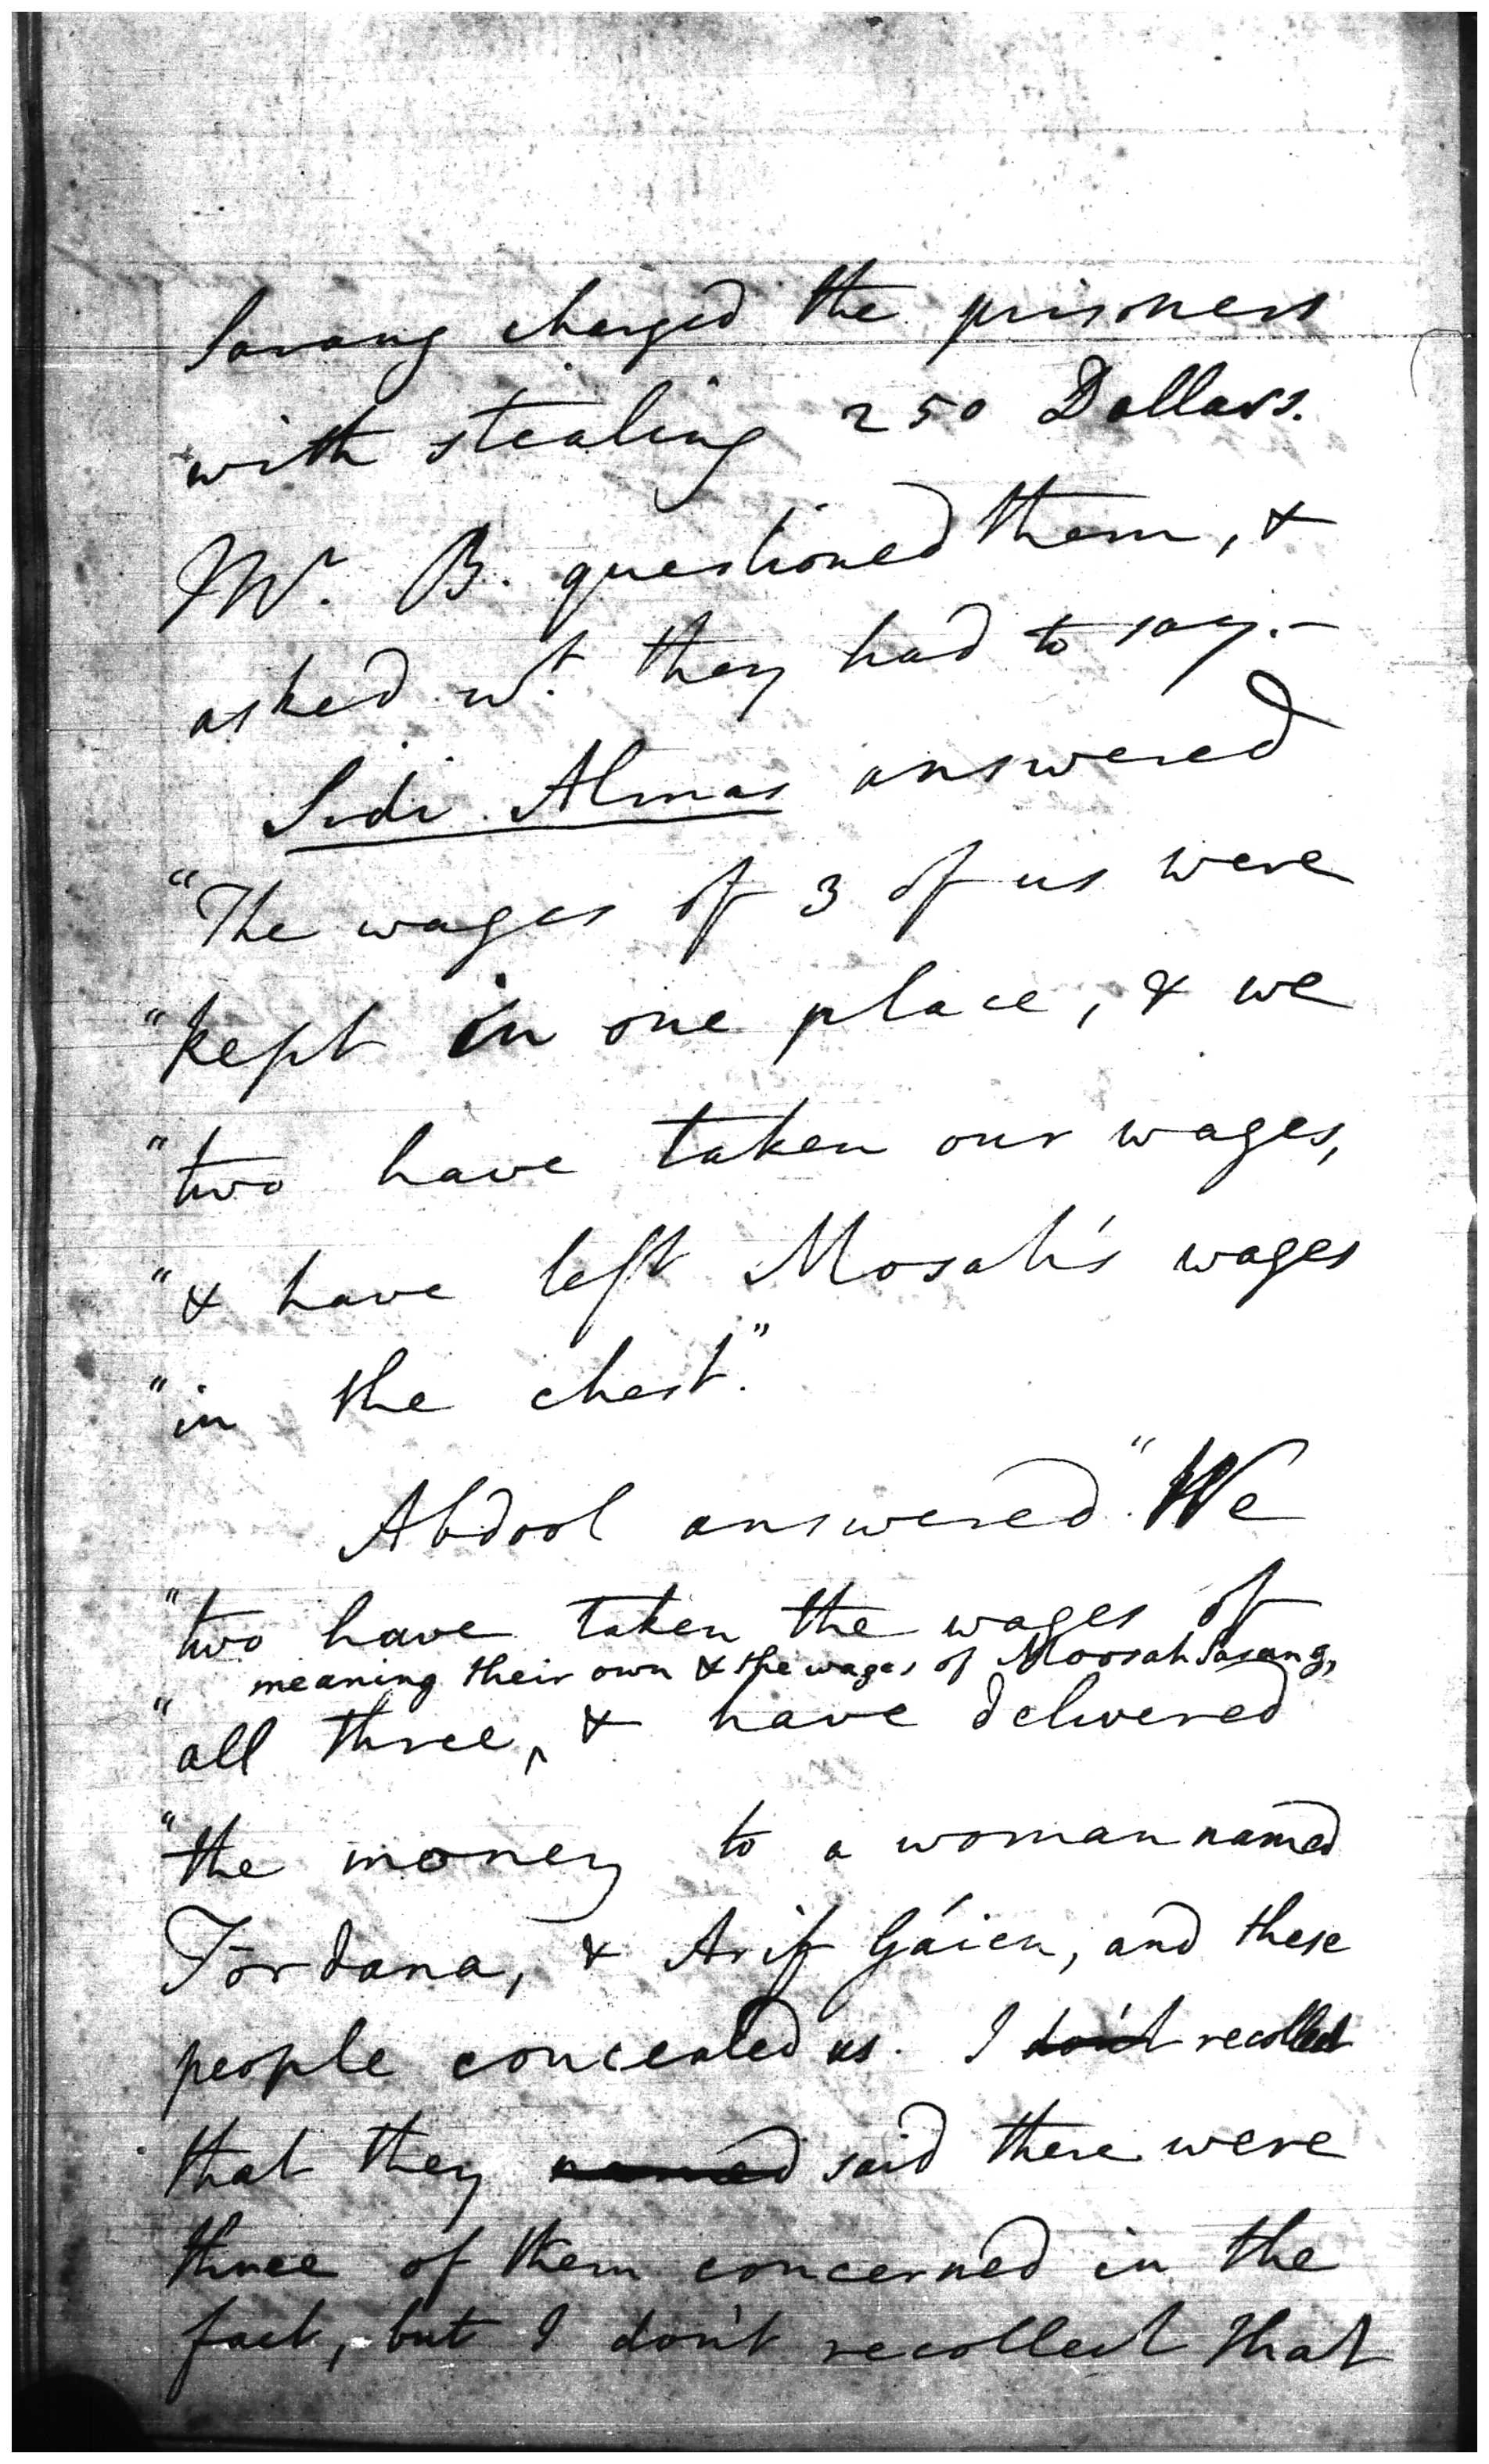 Sarang charged the prisoners
with stealing 250 Dollars.
Mr. B. questioned them, &
asked wt. they had to say.–
Sidi Almas answered
"The wages of 3 of us were
"kept in one place, & we
"two have taken our wages,
"& have left Mosah's wages
"in the chest."
Abdool answered "We
"two have taken the wages of
meaning their own & the wages of Moosah Sarang,
"all three, & have delivered
"the money to a woman named
Tordana, & Arif Gáien, and these
people concealed us. I don't recollect
that they named said there were
three of them concerned in the
fact, but I don't recollect that